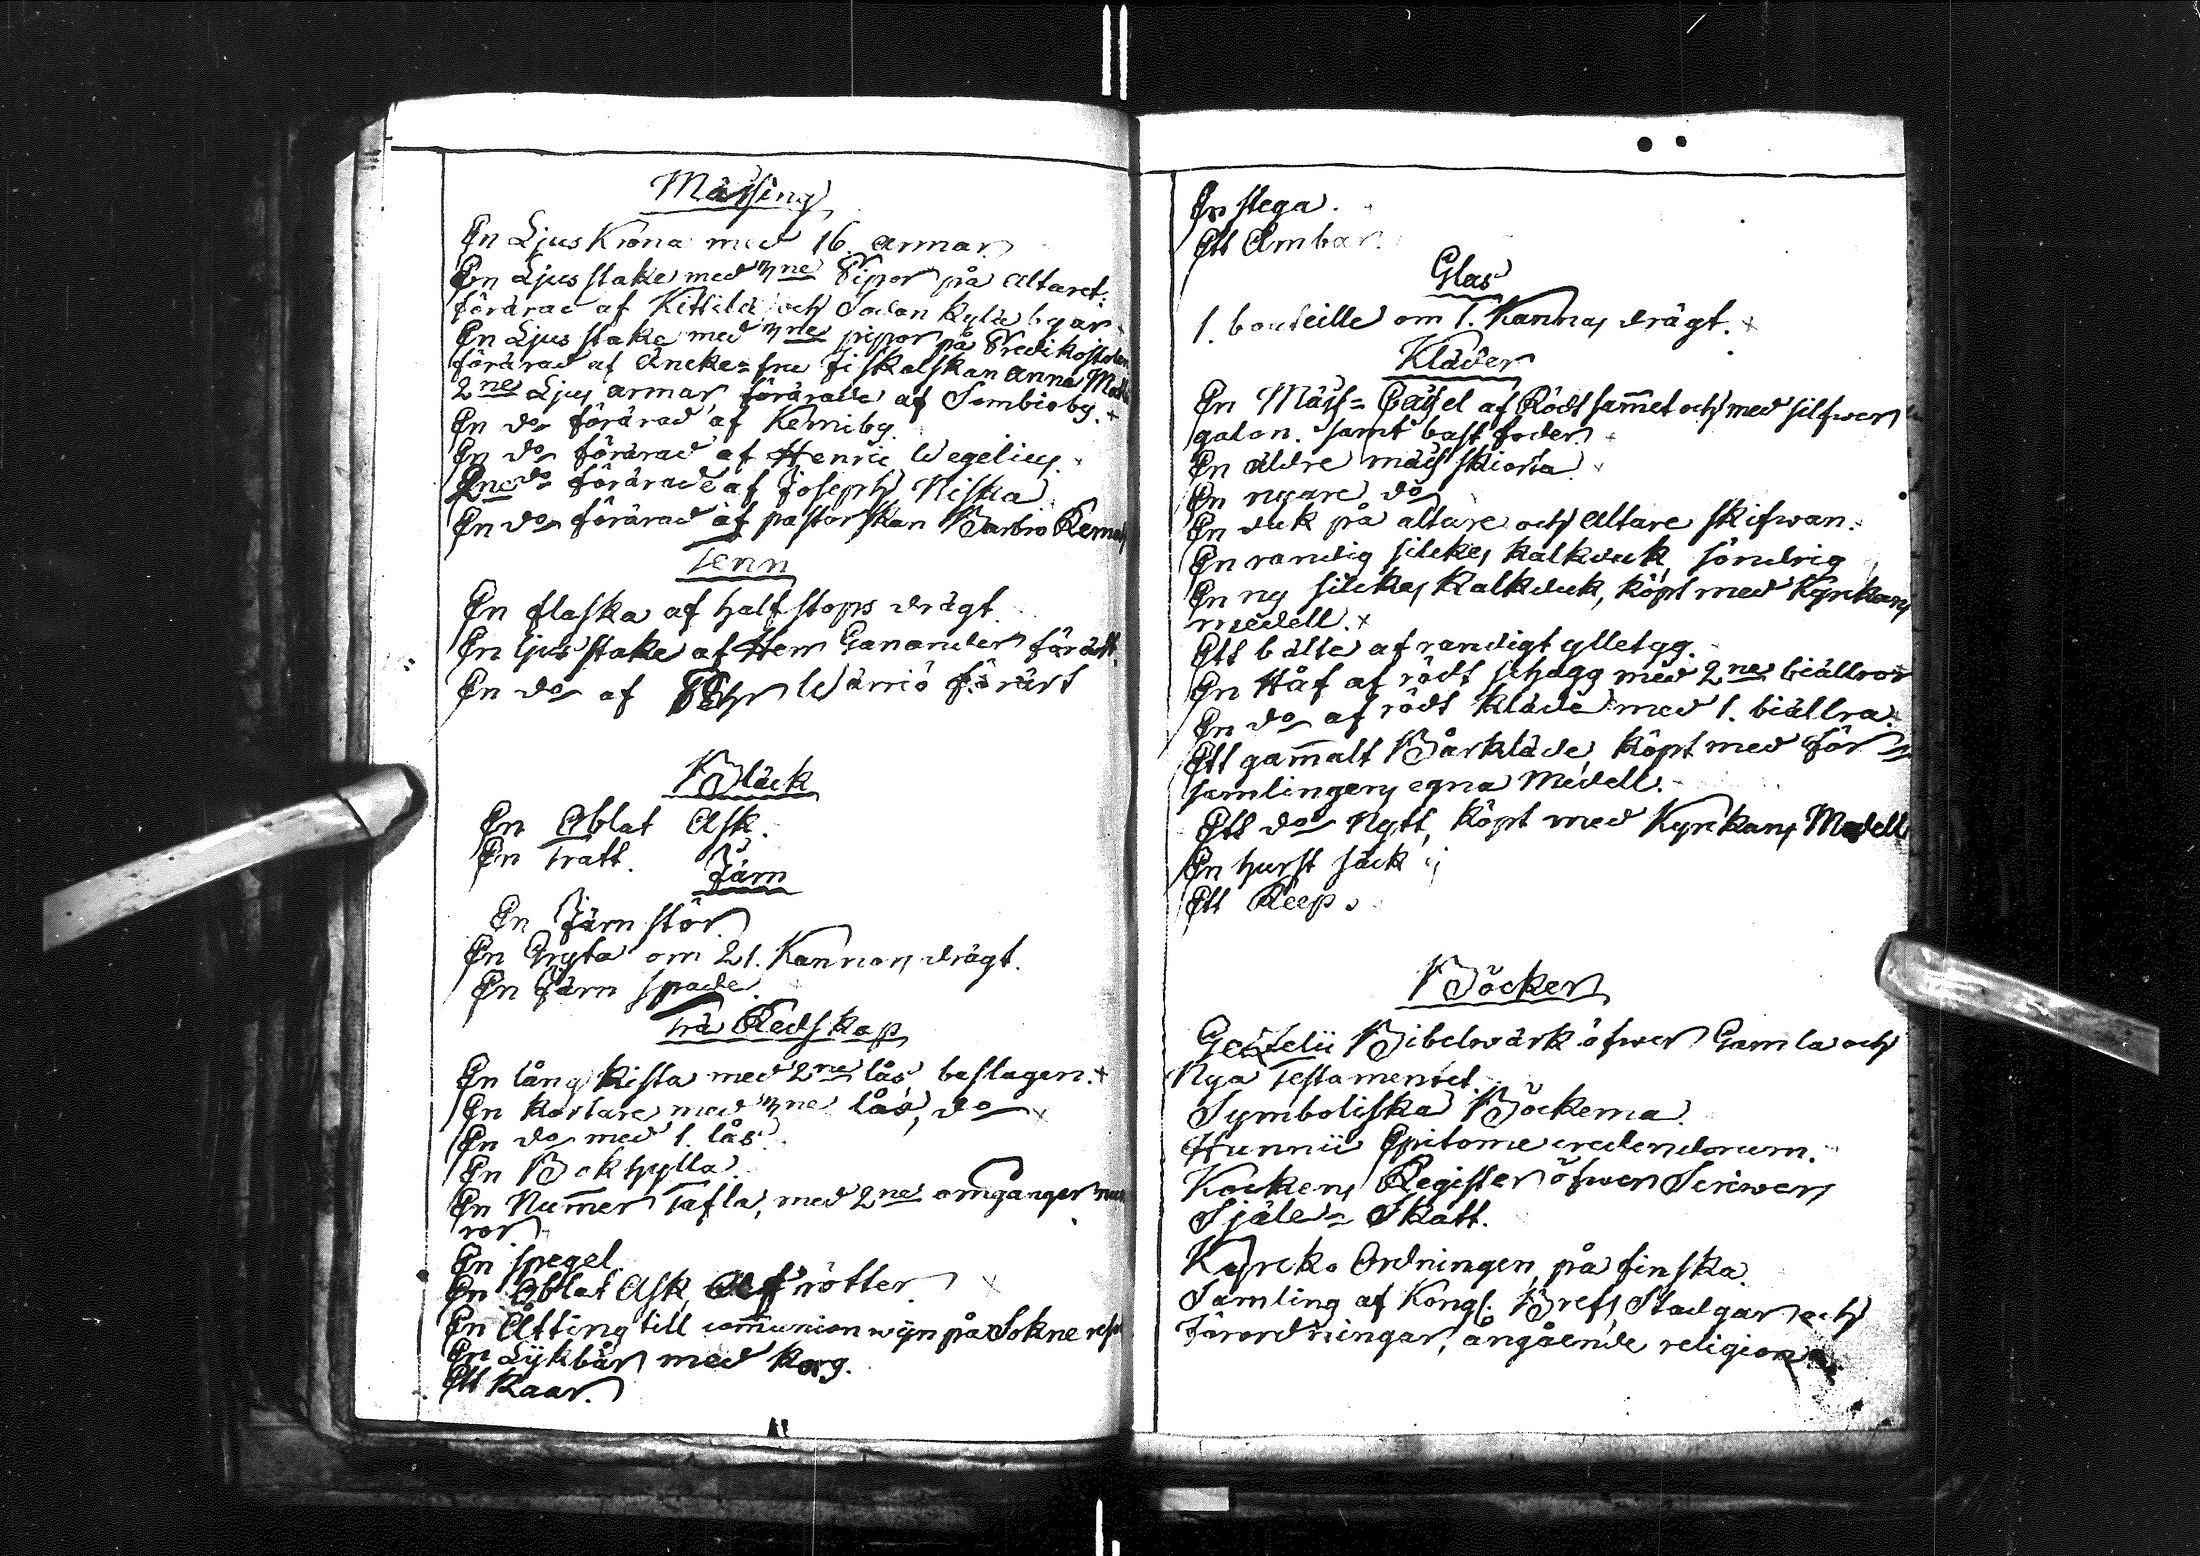 Mässing
En Ljus Krona med 16. armar.
En Ljusstake med 3ne Pipor på Altaret.
förärad af Kittilä och Sodan kylä byar
En Ljusstake med 3ne pipor på Predikostolen
förärad af Äncke=fru fiskalskan Anna
2ne Ljus armar förärade af Sombio by. +
En do förärad af Kemiby.
En do förärad af Henric Wegelius.
2ne do förärade af Joseph Niska
En do förärad af pastorskan Barbro
Tenn
En flaska af half stops drägt.
En ljus stake af Herr Ganander förärt.
En do af Wärriö förärt
Bläck
En Oblat Ask.
En Tratt.
Järn
En Järn stör.
En Gryta om 21. Kannors drägt.
En Järn spade.
Trä Redskap
En lång Kista med 2ne lås, beslagen. +
En kortare med 3ne lås, do +
En do med 1. lås.
En Bokhylla.
En Nummer Tafla, med 2ne omgånger
ror.
En spegel
En Oblat Ask af rötter.
En Åtting till communion wijn på Sokne
En Lijkbår med korg.
Ett Kaar.
En stega.
Ett Ämbar.
Glas
1. bouteille om 1. Kannas drägt. +
Kläder
En Mäss=Hakel af Rödt sammet och med silfwer
galon. samt bast foder.
En äldre mäss skiorta.
En nyare do
En duk på altare och Altare skifwan.
En randig silckes kalkduk, söndrig
En ny silckes Kalkduk, köpt med Kyrkans
medell. +
Ett bälte af randigt ylletyg.
En Håf af rödt schagg med 2ne biällror
En do af rödt kläde med 1. biällra.
Ett gammalt Bårkläde, köpt med för=
samlingens egna Medell.
Ett do Nytt, köpt med Kyrkans Medell
En hurst säck
Ett Reep.
Böcker
Gezelii Bibelwärk öfwer Gamla och
Nya Testamentet.
Symboliska Böckerna.
Hunnii Epitome credendorum.
Kockens Register öfwer Scriwers
Själe=Skatt.
Kyrcko Ordningen på finska.
Samling af Kongl. Bref, Stadgar och
Förordningar, angående religion